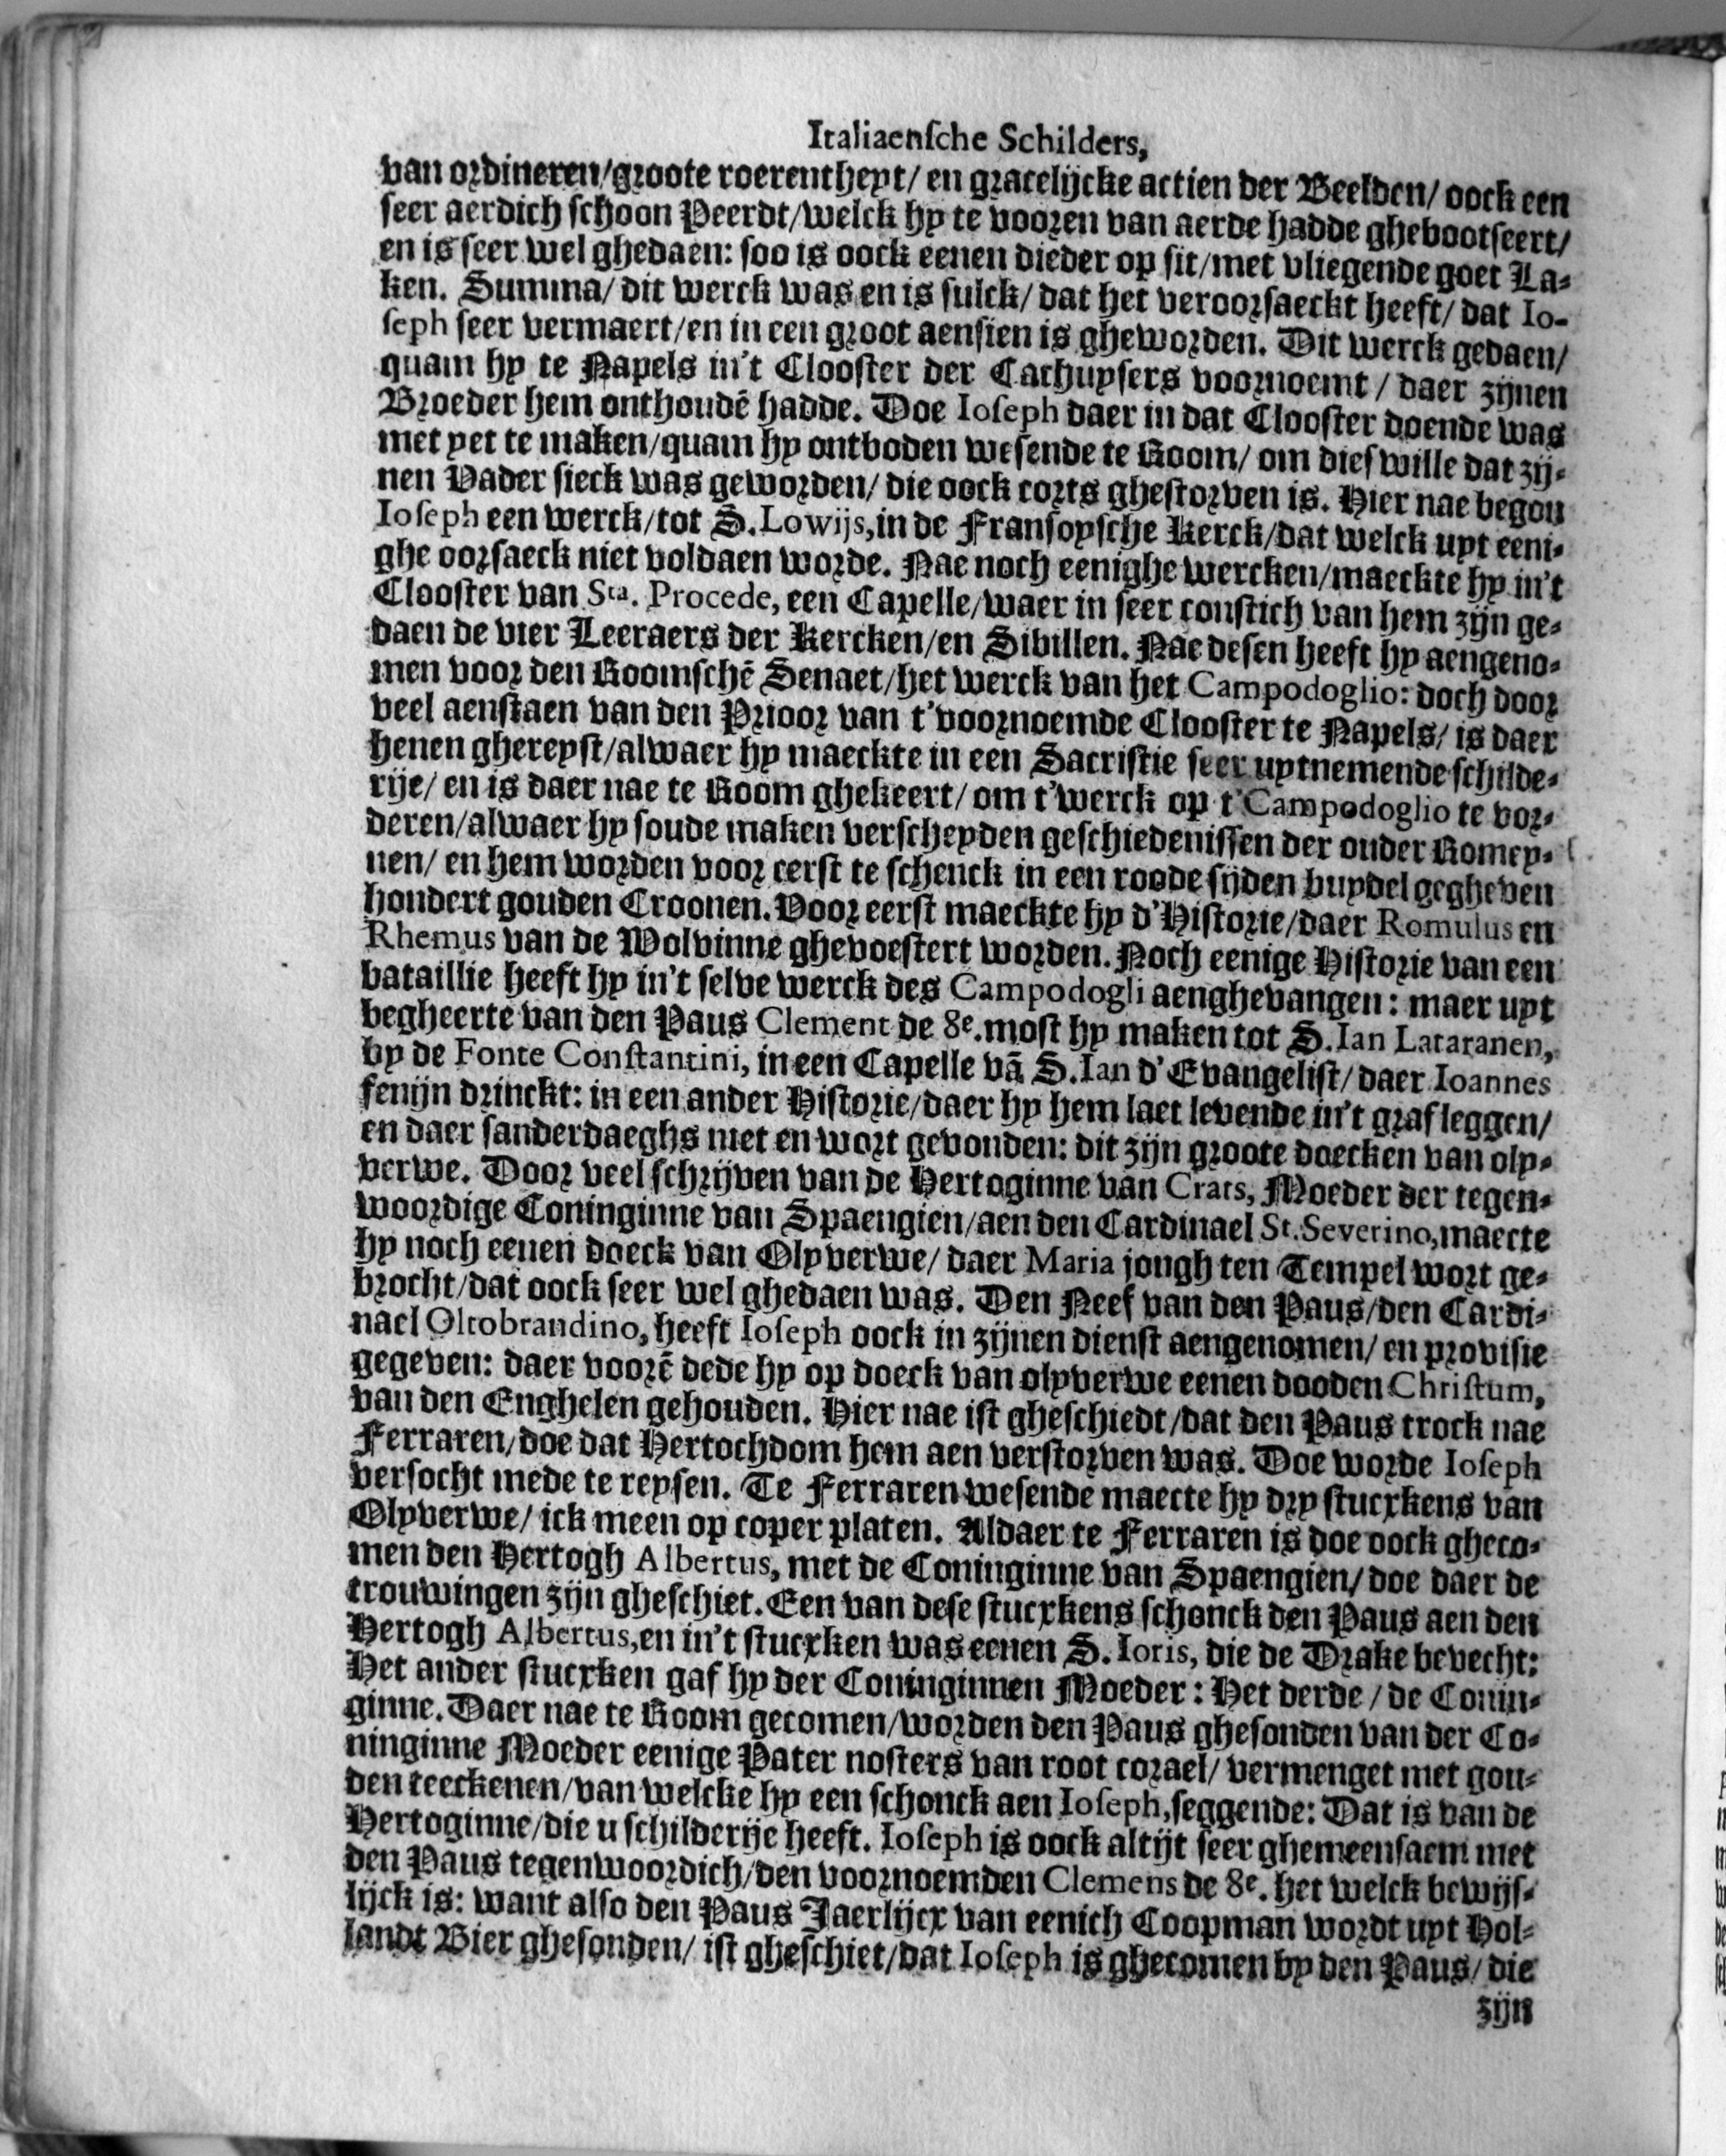 Italiaenſche Schilders,
van ordineren/groote roerentheyt/ en gracelijcke actien der Beelden/ oock een
ſeer aerdich ſchoon Peerdt/welck hy te vooren van aerde hadde ghebootſeert/
en is ſeer wel ghedaen: ſoo is oock eenen dieder op ſit/met vliegende goet La-
ken. Summa/ dit werck was en is ſulck/ dat het veroorſaeckt heeft/ dat Io-
ſeph ſeer vermaert/en in een groot aenſien is gheworden. Dit werck gedaen/
quam hy te Napels in't Clooſter der Cathuyſers voornoemt / daer zijnen
Broeder hem onthoudē hadde. Doe Ioſeph daer in dat Clooſter doende was
met yet te maken/quam hy ontboden weſende te Room/ om dieſwille dat zij-
nen Vader ſieck was geworden/ die oock corts gheſtorven is. Hier nae begon
Ioſeph een werck/tot S. Lowijs, in de Franſoyſche Kerck/dat welck uyt eeni-
ghe oorſaeck niet voldaen worde. Nae noch eenighe wercken/maeckte hy in't
Clooſter van Sta. Procede, een Capelle/waer in ſeer conſtich van hem zijn ge-
daen de vier Leeraers der Kercken/en Sibillen. Nae deſen heeft hy aengeno-
men voor den Roomſchē Senaet/het werck van het Campodoglio: doch door
veel aenſtaen van den Prioor van t'voornoemde Clooſter te Napels/ is daer
henen ghereyſt/alwaer hy maeckte in een Sacriſtie ſeer uytnemende ſchilde-
rije/ en is daer nae te Room ghekeert/ om t'werck op t'Campodoglio te vor-
deren/alwaer hy ſoude maken verſcheyden geſchiedeniſſen der ouder Romey-
nen/ en hem worden voor eerſt te ſchenck in een roode ſijden buydel gegheven
hondert gouden Croonen. Voor eerſt maeckte hy d'Hiſtorie/daer Romulus en
Rhemus van de Wolvinne ghevoeſtert worden. Noch eenige Hiſtorie van een
bataillie heeft hy in't ſelve werck des Campodogli aenghevangen: maer uyt
begheerte van den Paus Clement de 8e. moſt hy maken tot S. Ian Lataranen,
by de Fonte Conſtantini, in een Capelle vā S. Ian d'Evangeliſt/ daer Ioannes
fenijn drinckt: in een ander Hiſtorie/daer hy hem laet levende in't graf leggen/
en daer ſanderdaeghs niet en wort gevonden: dit zijn groote doecken van oly-
verwe. Door veel ſchrijven van de Hertoginne van Crats, Moeder der tegen-
woordige Coninginne van Spaengien/aen den Cardinael St. Severino, maecte
hy noch eenen doeck van Olyverwe/ daer Maria jongh ten Tempel wort ge-
brocht/dat oock ſeer wel ghedaen was. Den Neef van den Paus/den Cardi-
nael Oltobrandino, heeft Ioſeph oock in zijnen dienſt aengenomen/ en proviſie
gegeven: daer voorē dede hy op doeck van olyverwe eenen dooden Chriſtum,
van den Enghelen gehouden. Hier nae iſt gheſchiedt/dat den Paus trock nae
Ferraren/doe dat Hertochdom hem aen verſtorven was. Doe worde Ioſeph
verſocht mede te reyſen. Te Ferraren weſende maecte hy dry ſtucxkens van
Olyverwe/ ick meen op coper platen. Aldaer te Ferraren is doe oock gheco-
men den Hertogh Albertus, met de Coninginne van Spaengien/ doe daer de
trouwingen zijn gheſchiet. Een van deſe ſtucxkens ſchonck den Paus aen den
Hertogh Albertus, en in't ſtucxken was eenen S. Ioris, die de Drake bevecht:
Het ander ſtucxken gaf hy der Coninginnen Moeder: Het derde / de Conin-
ginne. Daer nae te Room gecomen/worden den Paus gheſonden van der Co-
ninginne Moeder eenige Pater noſters van root corael/ vermenget met gou-
den teeckenen/van welcke hy een ſchonck aen Ioſeph, ſeggende: Dat is van de
Hertoginne/die u ſchilderije heeft. Ioſeph is oock altijt ſeer ghemeenſaem met
den Paus tegenwoordich/den voornoemden Clemens de 8e. het welck bewijſ-
lijck is: want alſo den Paus Jaerlijcx van eenich Coopman wordt uyt Hol-
landt Bier gheſonden/ iſt gheſchiet/dat Ioſeph is ghecomen by den Paus/ die
zijn